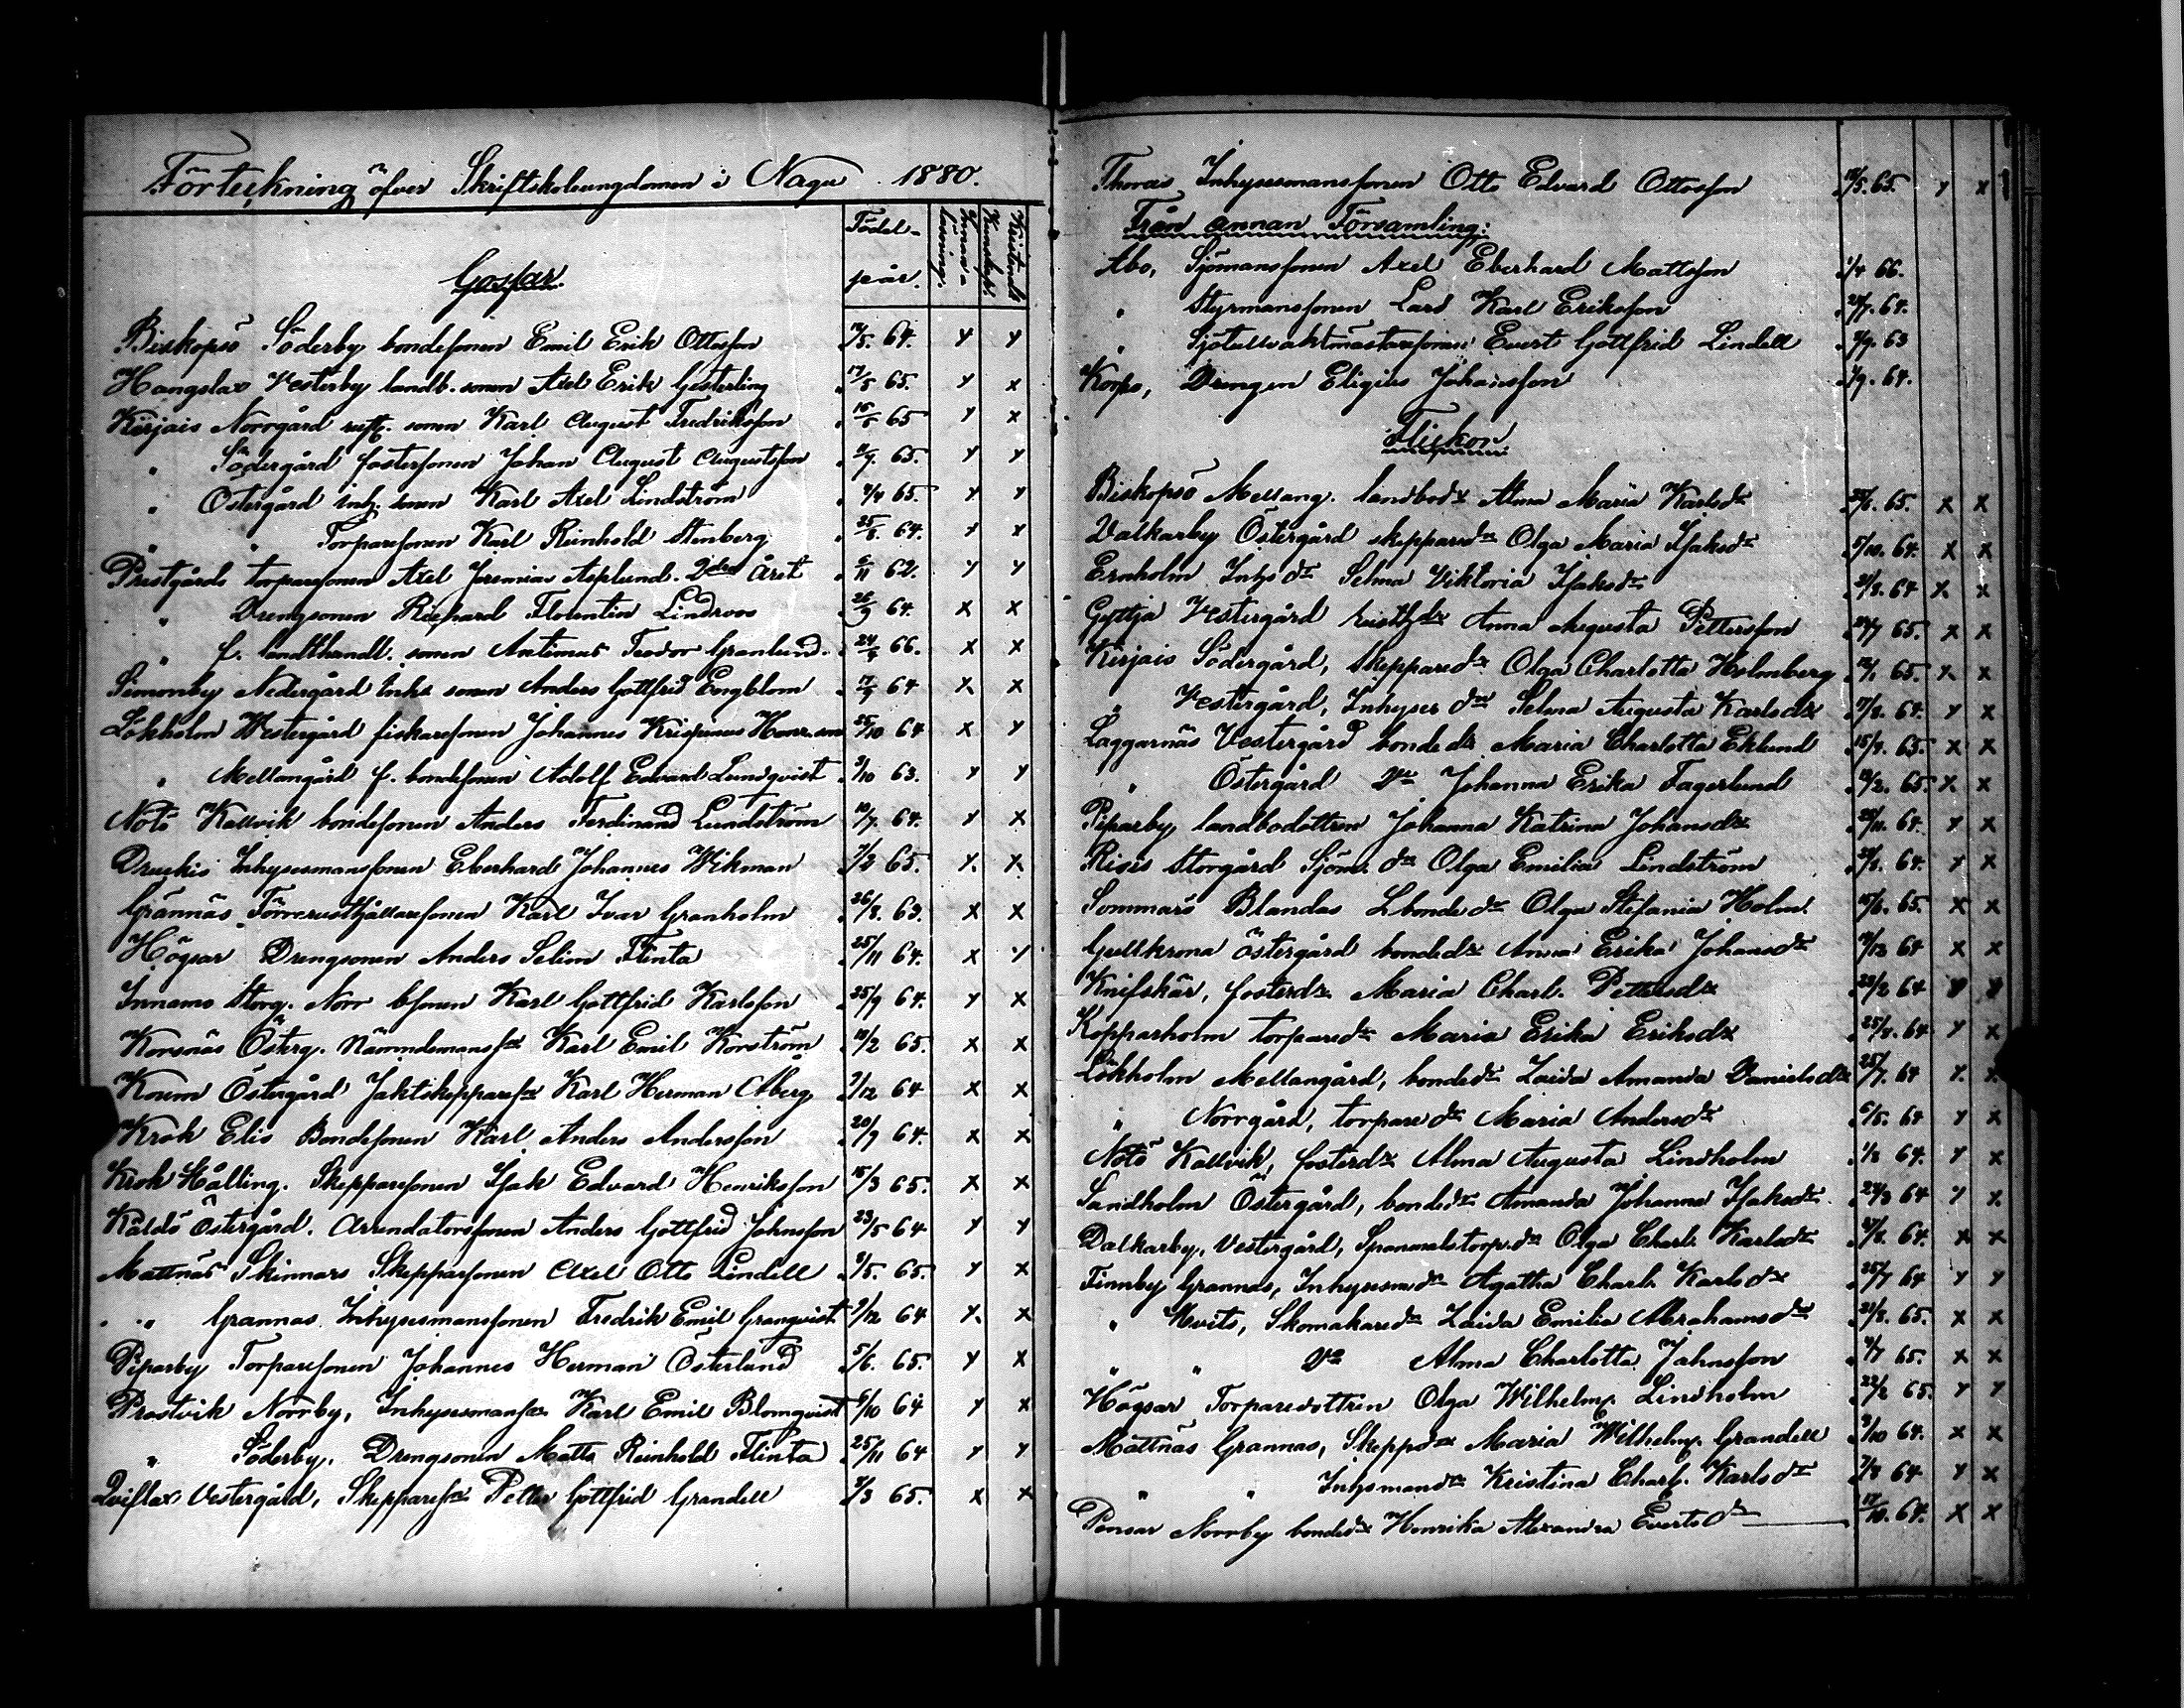 Förteckning öfver Skriftskoleungdomen i Nagu 1880.
Födel- Innan- Kristends
seår. läsning. Kunskap.
Gossar.
Biskopsö Söderby bondesonen Emil Erik Ottosson 64. x x
Hangslax Vesterby landb. sonen Axel Erik Gesterling 17/5 65. x x
Kirjais Norrgård rusth. sonen Karl August Fredriksson 65 x x
" Södergård fostersonen Johan August Augustsson 65. x x
" Östergård inh. sonen Karl Axel Lindström 65. x x
" " Torparesonen Karl Reinhold Stenberg 64. x x
Prestgårds torparesonen Axel Jeremias Asplund. 2dra året 62. x x
" Drengsonen Richard Florentin Lindroos 64. x x
" f. landthandl. sonen Antimus Teodor Granlund. 66. x x
Simonby Nedergård Inhs sonen Anders Gottfrid Engblom 64 x x
Lökholm Westergård fiskaresonen Johannes Krispinus Henr.son 25/10 64 x x
" Mellangård f. bondesonen Adolf Edvard Lundqvist 63. x x
Nötö Kallvik bondesonen Anders Ferdinand Lundström 10/7. 64. x x
Inhysesmanssonen Eberhard Johannes Wikman 65. x x
Grännäs Förre rusthållaresonen Karl Ivar Granholm 26/8. 63. x x
Högsar Drengsonen Anders Selim Flinta 25/11 64. x x
Innamo Storg. Norr bsonen Karl Gottfrid Karlsson 25/9 64. x x
Korsnäs Österg. Nämndemanss. Karl Emil Korström 10/2 65. x x
Kouvo Östergård Jaktskepparesn Karl Herman Åberg 64 x x
Krok Elis Bondesonen Karl Anders Andersson 20/9 64. x x
Krok Hålling. Skepparesonen Isak Edvard Henriksson 15/3 65. x x
Käldö Östergård. Arrendatorssonen Anders Gottfrid Johnsson 23/5 64 x x
Mattnäs Skinnars Skepparesonen Axel Otto Lindell 65. x x
" Grannas Inhysesmanssonen Fredrik Emil Granqvist 9/12 64 x x
Piparby Torparesonen Johannes Herman Österlund 5/6. 65. x x
Prostvik Norrby, Inhysesmanssn Karl Emil Blomqvist 6/10 64 x x
" Söderby. Drengsonen Matts Reinhold Flinta 25/11 64 x x
Qviflax Vestergård, Skepparesn Petter Gottfrid Grandell 65. x x
Thoras Inhysesmanssonen Otto Edvard Ottosson 65. x x
Från annan Församling:
Åbo, Sjömanssonen Axel Eberhard Mattsson 1/4 66.
" Styrmanssonen Lars Karl Eriksson 64.
" Sjötullvaktmästaresonen Evert Gottfrid Lindell 63
Korpo, Drengen Eligius Johansson 64.
Flickor
Biskopsö Mellang. landbodr Alma Maria Karlsdr 65. x x
Dalkarby Östergård skepparedr Olga Maria Isaksdr 5/10. 64. x x
Ernholm Inhysdr Selma Viktoria Isaksdr 64 x x
Gyttja Vestergård rusthdr Anna Augusta Pettersson 65. x x
Kirjais Södergård, Skepparedr Olga Charlotta Holmberg 12/1 65. x x
" Vestergård, Inhysesdr Selma Augusta Karlsdr 64. x x
Laggarnäs Vestergård bondedr Maria Charlotta Eklund 65. x x
" Östergård Do Johanna Erika Fagerlund 65. x x
Piparby landbodottren Johanna Katrina Johansdr 64. x x
Risis Storgård Sjöm. dr Olga Emilia Lindström 64. x x
Sommarö Blandas Lbondedr Olga Stefania Holm. 65. x x
Gullkrona Östergård bondedr Anna Erika Johansdr 64 x x
Knifskär, fosterdr Maria Charl. Pettersdr 23/2 64 x x
Kopparholm torparedr Maria Erika Eriksdr 25/8. 64 x x
Lökholm Mellangård, bondedr Zaida Amanda Danielsdr 25/7. 64 x x
" Norrgård, torparedr Maria Andersdr 6/5. 64 x x
Nötö Kallvik, fosterdr Alma Augusta Lindholm 1/8 64. x x
Sandholm Östergård, bondedr Amanda Johanna Isaksdr 64 x x
Dalkarby, Vestergård, Spanmålstorp.dr Olga Charl. Karlsdr 64. x x
Finnby Grannas, Inhysesmdr Agatha Charl. Karlsdr 64 x x
" Hvits, Skomakaredr Zaida Emilia Abrahamsdr 65. x x
" " Do Alma Charlotta Johnsson 65. x x
Högsar Torparedottren Olga Wilhelm. Lindholm 22/2 65. x x
Mattnäs Grannas, Skeppsdr Maria Wilhelm. Grandell 64. x x
" " Inhysmansdr Kristina Charl. Karlsdr 64 x x
Pensar Norrby bondedr Henrika Alexandra Evertsdr 64. x x